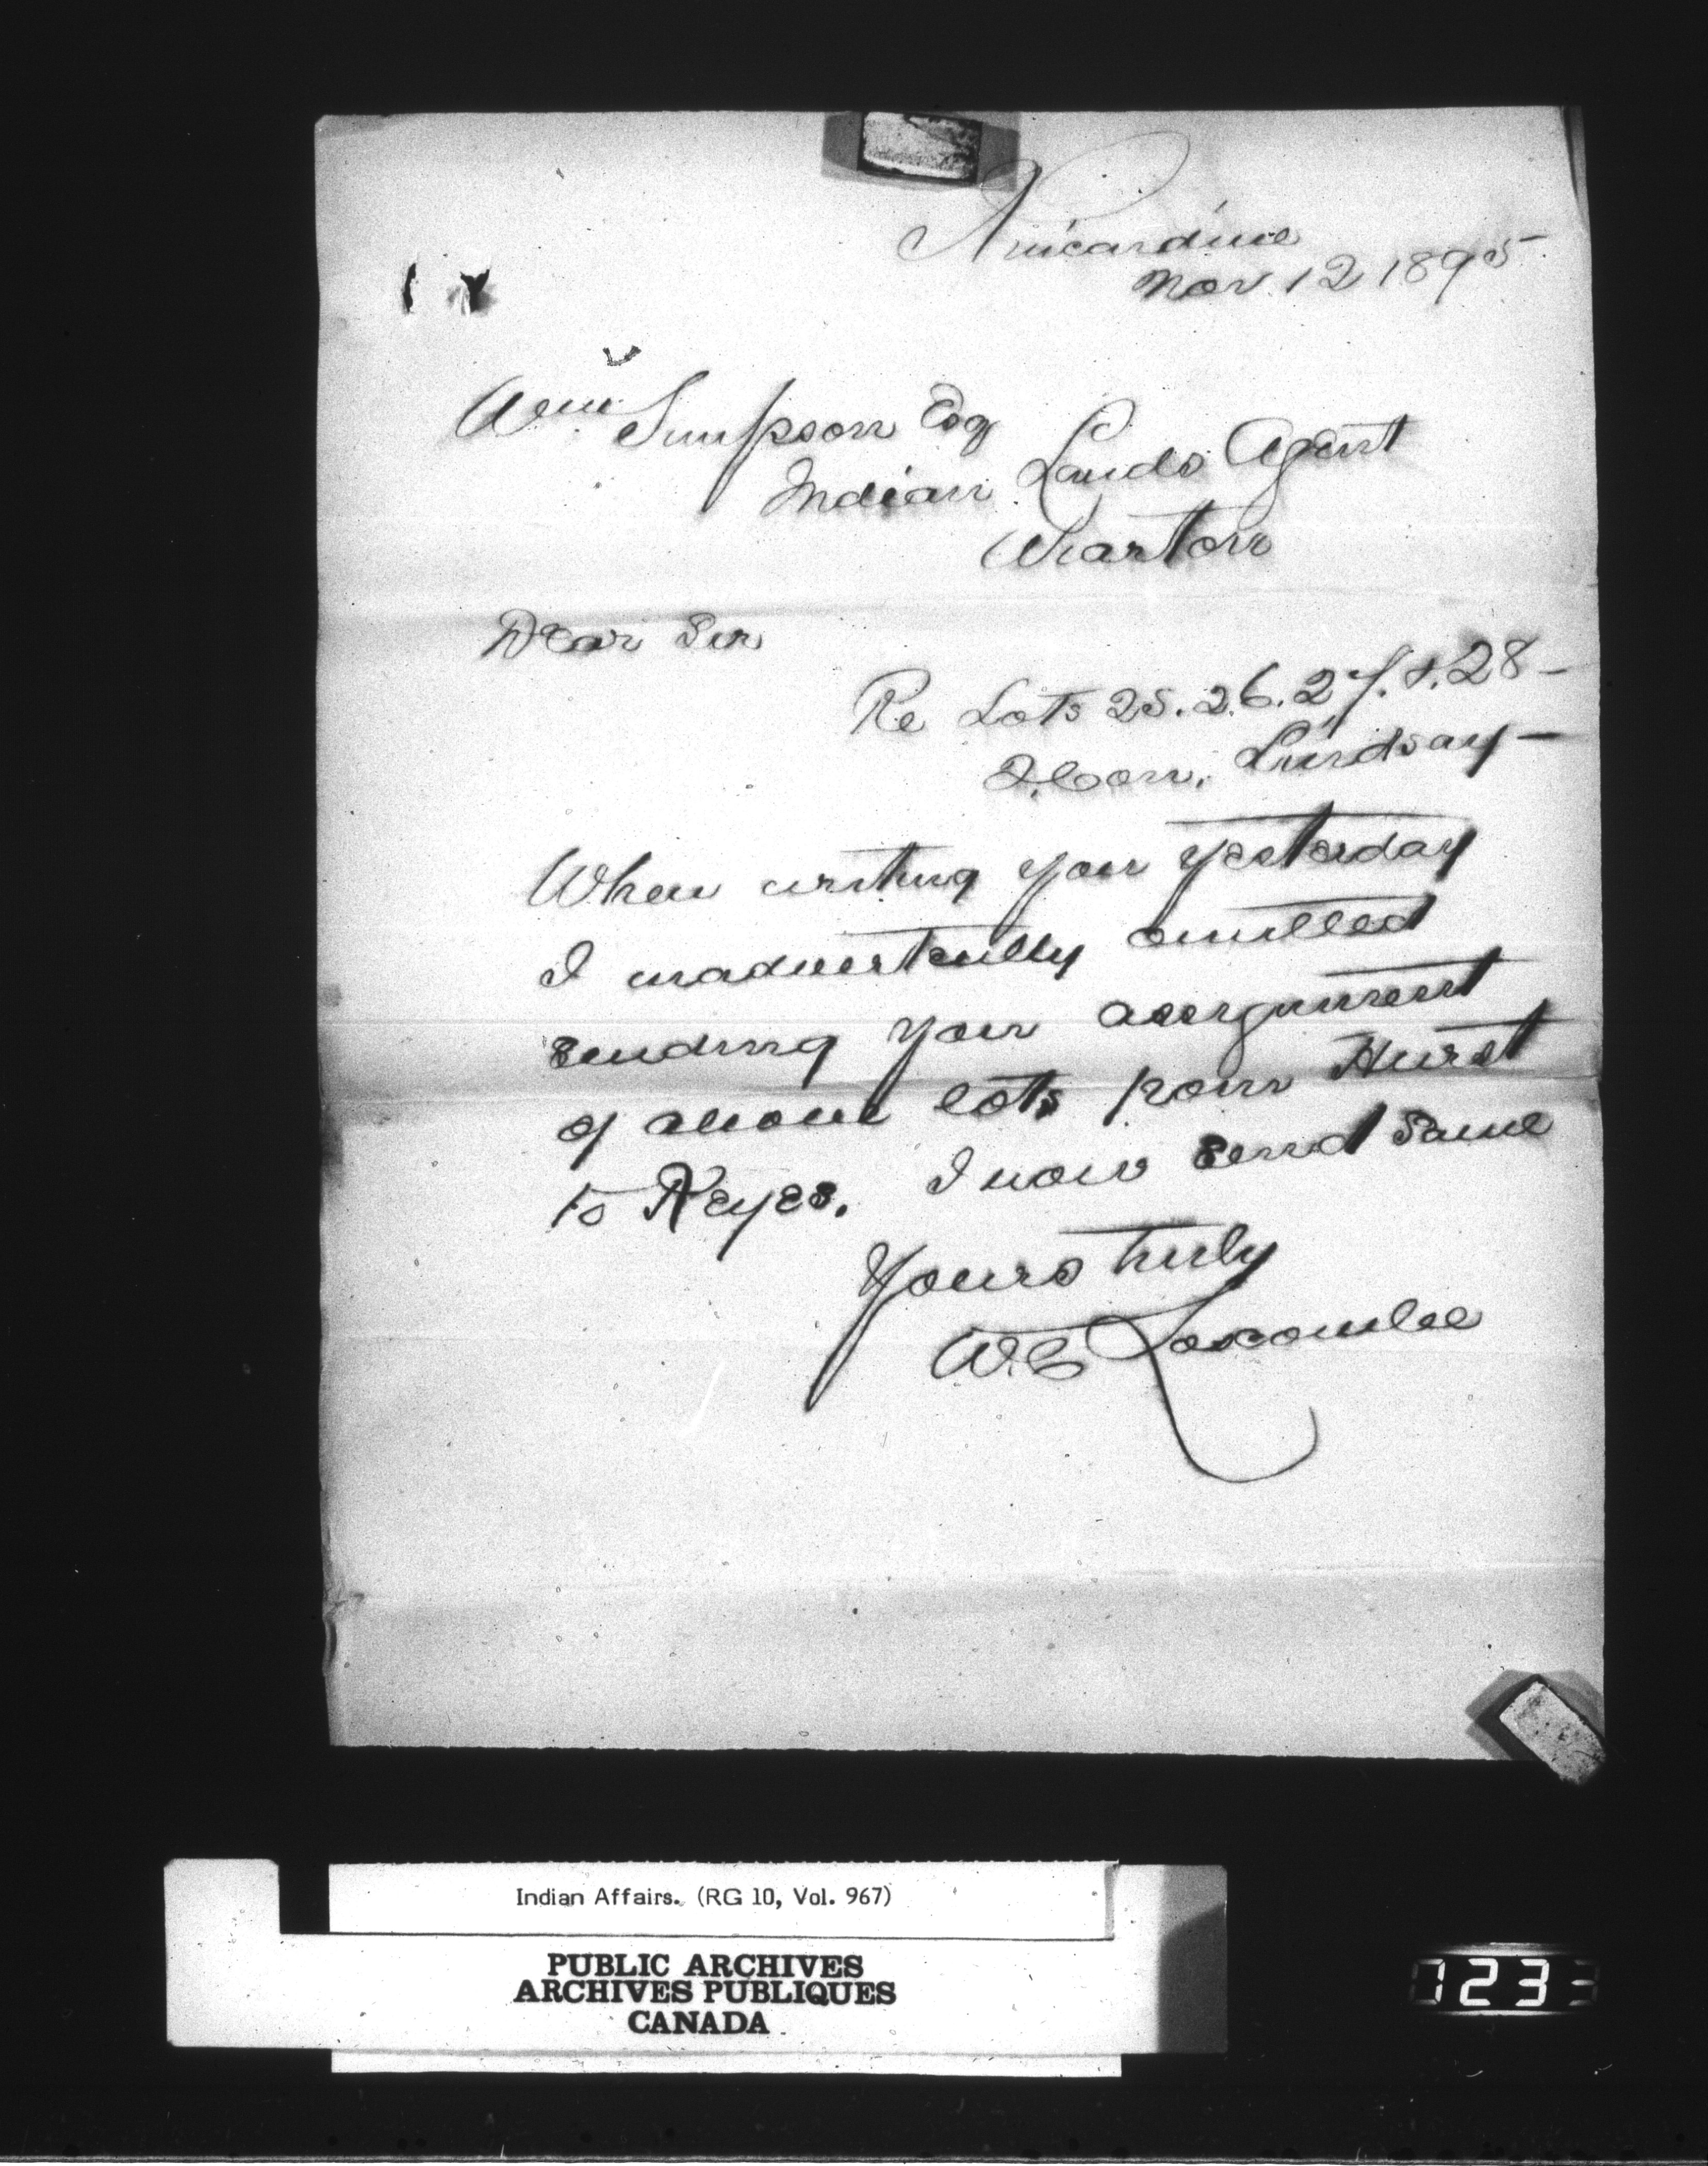 Kincardine
Nov. 12 1895
Wm Simpson Esq
Indian Lands Agent
Wiarton
Dear Sir
Re Lots 25. 26. 27. & 28 -
2. Con. Lindsay -
When writing you yesterday
I inadvertently omitted
sending you assignment
of above lots from Hurst
to Keyes. I now send same
Yours truly
W.C. Loscombe
Indian Affairs. (RG 10, Vol. 967)
PUBLIC ARCHIVES
ARCHIVES PUBLIQUES
CANADA